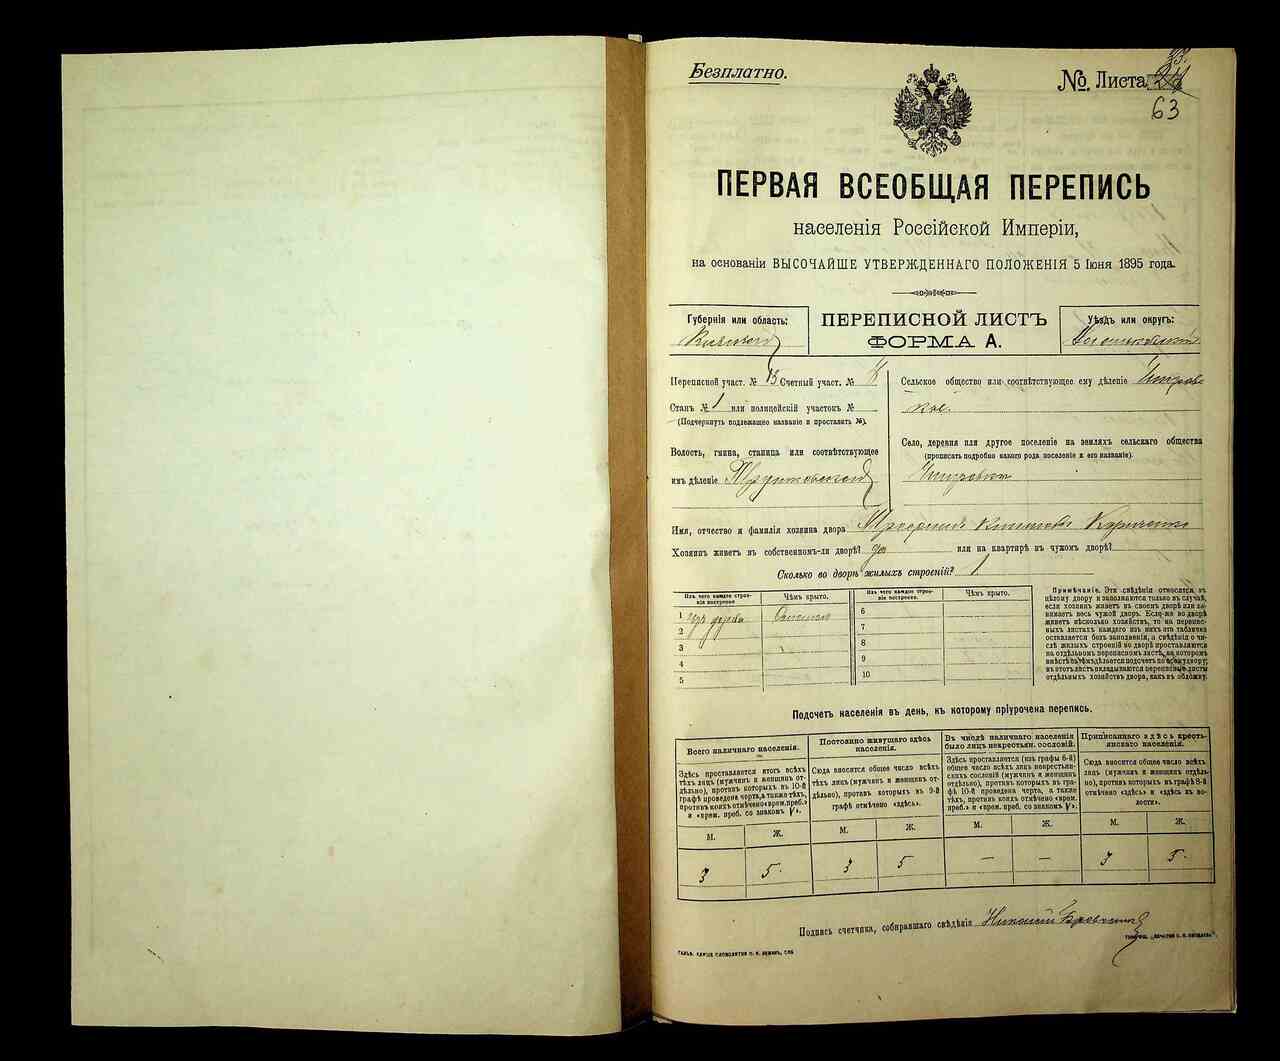 Безплатно.
№. Листа
63
ПЕРВАЯ ВСЕОБЩАЯ ПЕРЕПИСЬ
населенія Россійской Имперіи,
на основаніи ВЫСОЧАЙШЕ УТВЕРЖДЕННАГО ПОЛОЖЕНІЯ 5 Іюня 1895 года.
Губернія или область:
ПЕРЕПИСНОЙ ЛИСТЪ
ФОРМА А.
Уѣздъ или округъ:
Переписной участ. № 13 Счетный участ. №
Станъ № 1 или полицейскій участокъ №
(Подчеркнуть подлежащее названіе и проставить №).
Волость, гмина, станица или соотвѣтствующее
имъ дѣленіе
Сельское общество или соотвѣтствующее ему дѣленіе
кое.
Село, деревня или другое поселеніе на земляхъ сельскаго общества
(прописать подробно какого рода поселеніе и его названіе).
Имя, отчество и фамилія хозяина двора
Хозяинъ живетъ въ собственномъ-ли дворѣ? да или на квартирѣ въ чужомъ дворѣ?
Сколько во дворѣ жилыхъ строеній? 1
Изъ чего каждое строе-
ніе построено
Чѣмъ крыто.
1 изъ дерева Соломою
2
3
4
5
Изъ чего каждое строе-
ніе построено.
Чѣмъ крыто.
6
7
8
9
10
Примѣчаніе. Эти свѣдѣнія относятся къ
цѣлому двору и заполняются только въ случаѣ,
если хозяинъ живетъ въ своемъ дворѣ или за-
нимаетъ весь чужой дворъ. Если-же во дворѣ
живетъ нѣсколько хозяйствъ, то на перепис-
ныхъ листахъ каждаго изъ нихъ эта табличка
оставляется безъ заполненія, а свѣдѣнія о чи-
слѣ жилыхъ строеній во дворѣ проставляются
на отдѣльномъ переписномъ листѣ, на которомъ
вмѣстѣ съ тѣмъ дѣлается подсчетъ по всему двору;
въ этотъ листъ вкладываются переписные листы
отдѣльныхъ хозяйствъ двора, какъ въ обложку.
Подсчетъ населенія въ день, къ которому пріурочена перепись.
Всего наличнаго населенія.
Здѣсь проставляется итогъ всѣхъ
тѣхъ лицъ (мужчинъ и женщинъ от-
дѣльно), противъ которыхъ въ 10-й
графѣ проведена черта, а также тѣхъ,
противъ коихъ отмѣчено «врем. преб.»
и «врем. преб. со знакомъ V».
Постоянно живущаго здѣсь
населенія.
Сюда вносится общее число всѣхъ
тѣхъ лицъ (мужчинъ и женщинъ от-
дѣльно), противъ которыхъ въ 9-й
графѣ отмѣчено «здѣсь».
Въ числѣ наличнаго населенія
было лицъ некрестьян. сословій.
Здѣсь проставляется (изъ графы 6-й)
общее число всѣхъ лицъ некрестьян-
скихъ сословій (мужчинъ и женщинъ
отдѣльно), противъ которыхъ въ гра-
фѣ 10-й проведена черта, а также
тѣхъ, противъ коихъ отмѣчено «врем.
преб.» и «врем. преб. со знакомъ V».
Приписаннаго здѣсь кресть-
янскаго населенія.
Сюда вносится общее число всѣхъ
лицъ (мужчинъ и женщинъ отдѣль-
но), противъ которыхъ въ графѣ 8-й
отмѣчено «здѣсь» и «здѣсь въ во-
лости».
М. Ж. М. Ж. М. Ж. М. Ж.
3 5 3 5 — — 3 5
Подпись счетчика, собиравшаго свѣдѣнія